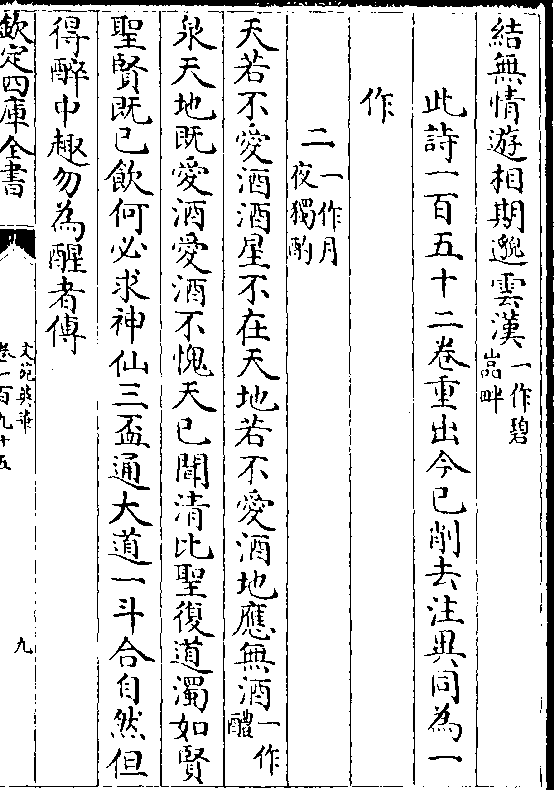 結無情遊相期邈雲漢一作碧嵓畔
此詩一百五十二卷重出今已削去注異同為一
作
二一作月夜獨酌
天若不愛酒酒星不在天地若不愛酒地應無酒一作醴
泉天地既愛酒愛酒不愧天已聞清比聖復道濁如賢
聖賢既已飲何必求神仙三盃通大道一斗合自然但
得醉中趣勿為醒者傳
欽定四庫全書
文苑英華
卷一百九十五
九